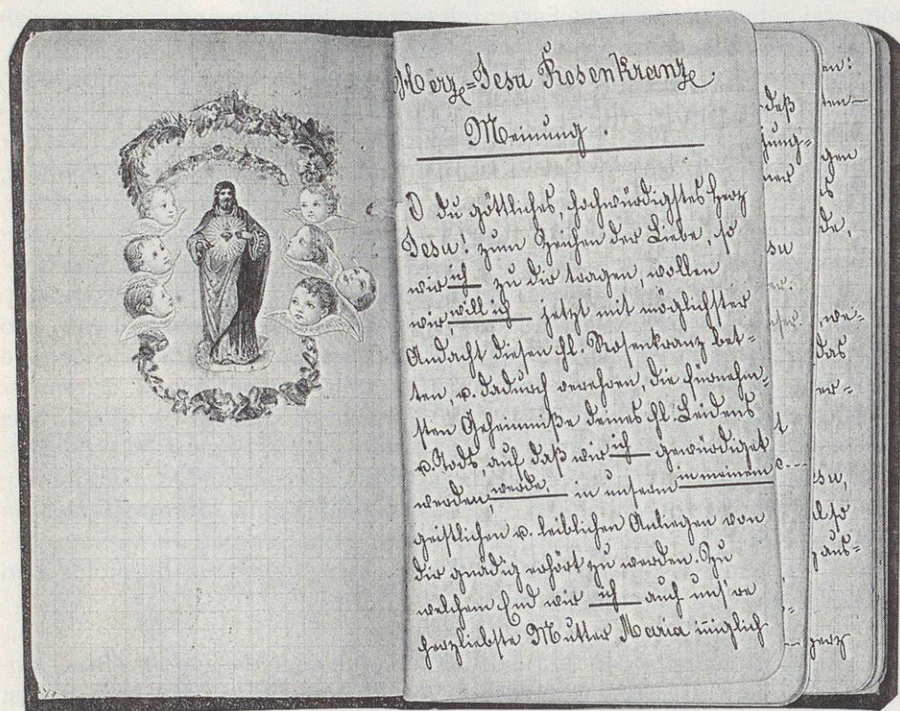 Herz=Jesu Rosenkranz
Meinung.
O du göttliches, hochwürdigstes Herz
Jesu! zum Zeichen der Liebe, so
wir ich zu dir tragen, wollen
wir will ich jetzt mit möglichster
Andacht diesen hl. Rosenkranz bet-
ten, u. dadurch verehren, die fürnehm-
sten Geheimniße deines hl. Leidens
u. Tods, auf daß wir ich gewürdiget
werden, werde, in unserm in meinem
geistlichen u. leiblichen Anliegen von
dir gnädig erhört zu werden. Zu
welchem End wir ich auch uns're
herzliebste Mutter Maria inniglich
daß
jung=
ner
su
t
en:
ten-
gen
s
de,
we=
das
er=
su,
also
aus=
herz